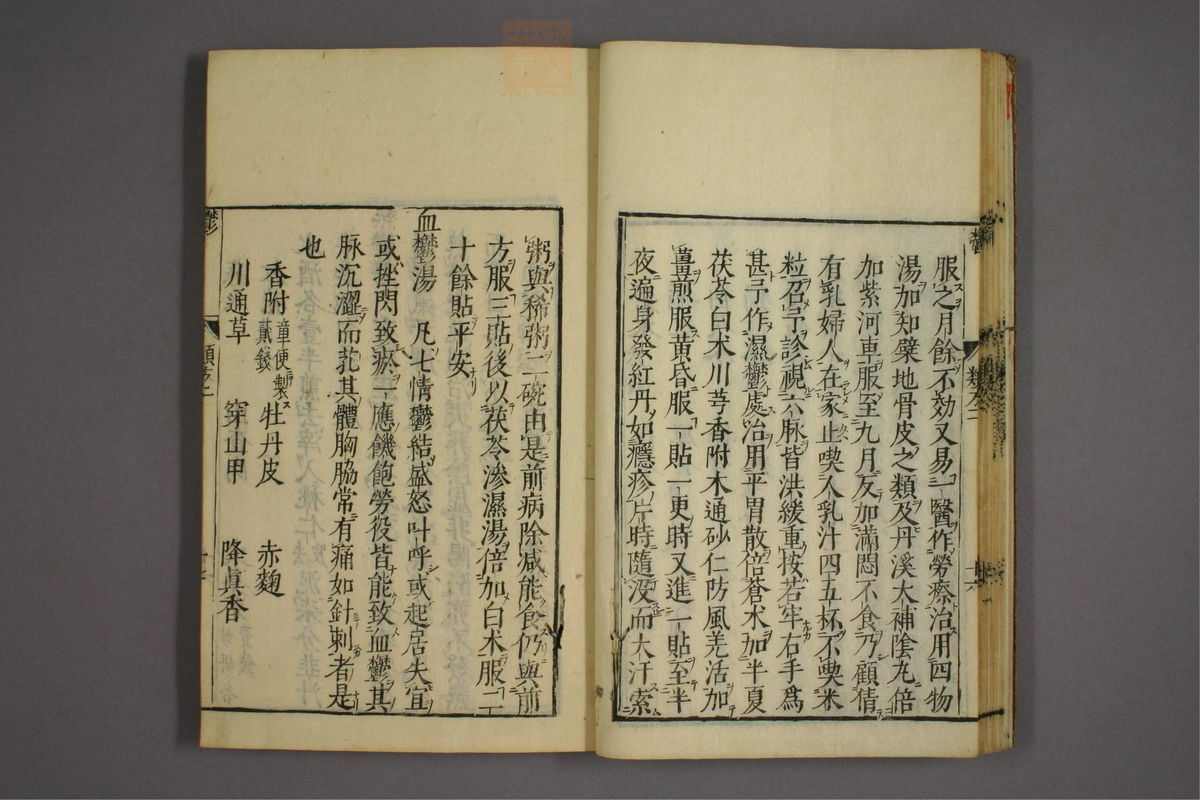 服之月餘不効又易一醫作勞瘵治用四物
湯加知蘗地骨皮之類及丹溪大補陰丸倍
加紫河車服至九月反加滿悶不食乃顧倩
有乳婦人在家止喫人乳汁四五杯不喫米
粒召予診視六脉皆洪緩重按若牢右手爲
甚予作濕鬱處治用平胃散倍蒼术加半夏
茯苓白术川芎香附木通砂仁防風羌活加
薑煎服黃昏服一貼一更時又進一貼至半
夜遍身發紅丹如癮疹片時隨没而大汗索
粥與稀粥二碗由是前病除减能食仍與前
方服三貼後以茯苓滲濕湯倍加白术服二
十餘貼平安
血鬱湯 凡七情鬱結盛怒叫呼或起居失宜
或挫閃致瘀一應饑飽勞役皆能致血鬱其
脉沉澀而芤其體胸脇常有痛如針刺者是
也
香附童便製貳錢 牡丹皮 赤麴
川通草 穿山甲 降真香